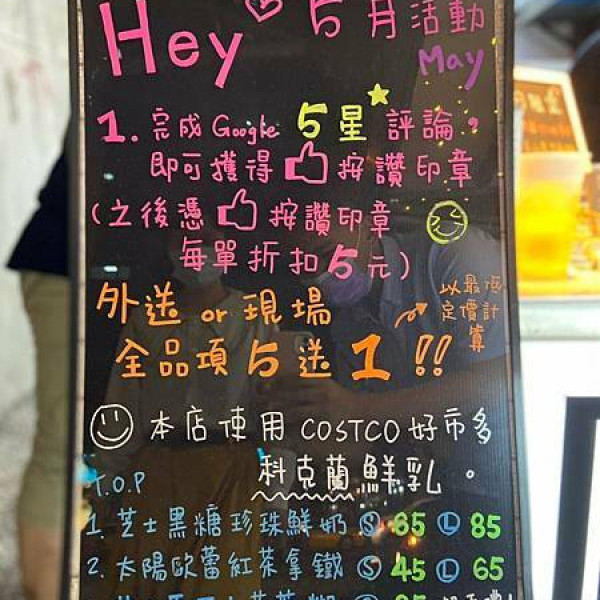 Hey 5月活動
May
1. 完成 Google 5星★評論，
即可獲得👍按讚印章
(之後憑👍按讚印章
每單折扣5元)
外送 or 現場
以最低
定價計
算
全品項5送1!!
本店使用 COSTCO 好市多
科克蘭鮮乳。
T.O.P
1. 芝士黑糖珍珠鮮奶 Ⓢ 65 Ⓛ 85
2. 太陽歐蕾紅茶拿鐵 Ⓢ 45 Ⓛ 65